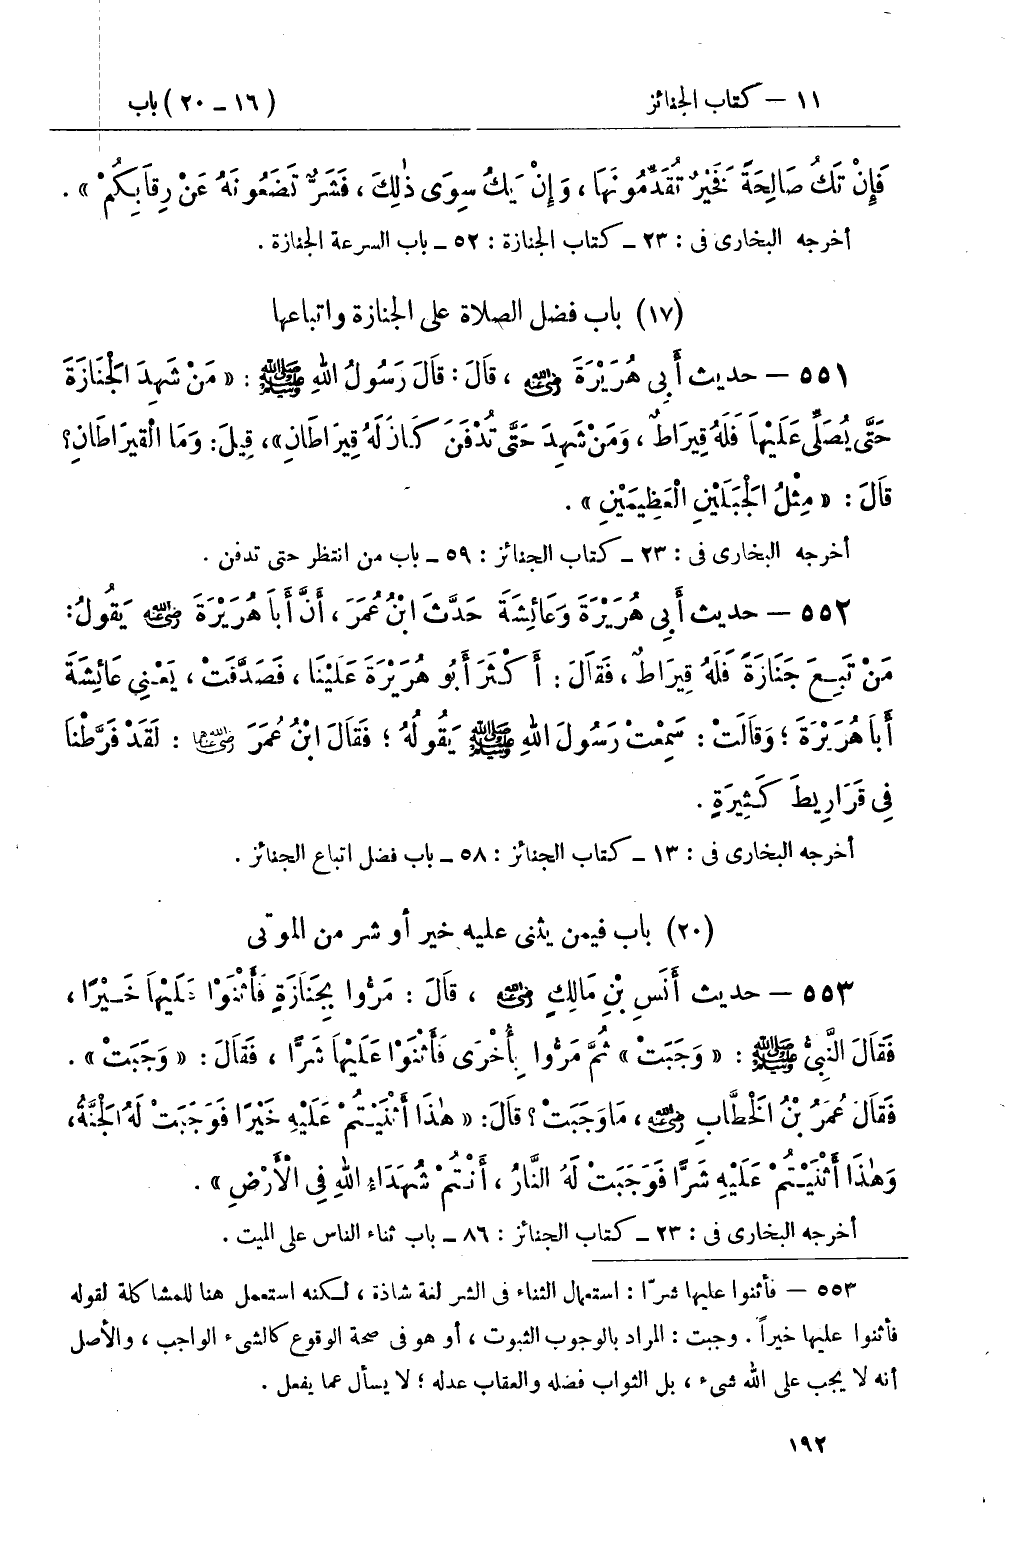 ١١ – كتاب الجنائز (١٦ – ٢٠) باب
فَإِنْ تَكُ صَالِحَةً فَخَيْرٌ تُقَدِّمُونَهَا ، وَإِنْ يَكُ سِوَى ذٰلِكَ ، فَشَرٌّ تَضَعُونَهُ عَنْ رِقَابِكُمْ » .
أخرجه البخارى فى : ٢٣ – كتاب الجنازة : ٥٢ – باب السرعة الجنازة .
(١٧) باب فضل الصلاة على الجنازة واتباعها
٥٥١ – حديث أَبِي هُرَيْرَةَ رضي الله عنه ، قَالَ : قَالَ رَسُولُ اللهِ ﷺ : « مَنْ شَهِدَ الْجَنَازَةَ
حَتَّى يُصَلِّىَ عَلَيْهَا فَلَهُ قِيرَاطٌ ، وَمَنْ شَهِدَ حَتَّى تُدْفَنَ كَانَ لَهُ قِيرَاطَانِ»، قِيلَ: وَمَا الْقِيرَاطَانِ؟
قَالَ : « مِثْلُ الْجَبَلَيْنِ الْعَظِيمَيْنِ » .
أخرجه البخارى فى : ٢٣ – كتاب الجنائز : ٥٩ – باب من انتظر حتى تدفن .
٥٥٢ – حديث أَبِي هُرَيْرَةَ وَعَائِشَةَ حَدَّثَ ابْنُ عُمَرَ ، أَنَّ أَبَا هُرَيْرَةَ رضي الله عنه يَقُولُ:
مَنْ تَبِعَ جَنَازَةً فَلَهُ قِيرَاطٌ ، فَقَالَ : أَكْثَرَ أَبُو هُرَيْرَةَ عَلَيْنَا ، فَصَدَّقَتْ ، يَعْنِي عَائِشَةَ
أَبَا هُرَيْرَةَ ؛ وَقَالَتْ : سَمِعْتُ رَسُولَ اللهِ ﷺ يَقُولُهُ ؛ فَقَالَ ابْنُ عُمَرَ رضي الله عنهما : لَقَدْ فَرَّطْنَا
فِي قَرَارِيطَ كَثِيرَةٍ .
أخرجه البخارى فى : ١٣ – كتاب الجنائز : ٥٨ – باب فضل اتباع الجنائز .
(٢٠) باب فيمن يثنى عليه خير أو شر من الموتى
٥٥٣ – حديث أَنَسِ بْنِ مَالِكٍ رضي الله عنه ، قَالَ : مَرُّوا بِجَنَازَةٍ فَأَثْنَوْا عَلَيْهَا خَيْرًا ،
فَقَالَ النَّبِيُّ ﷺ : « وَجَبَتْ » ثُمَّ مَرُّوا بِأُخْرَى فَأَثْنَوْا عَلَيْهَا شَرًّا ، فَقَالَ : « وَجَبَتْ » .
فَقَالَ عُمَرُ بْنُ الْخَطَّابِ رضي الله عنه ، مَا وَجَبَتْ ؟ قَالَ: « هٰذَا أَثْنَيْتُمْ عَلَيْهِ خَيْرًا فَوَجَبَتْ لَهُ الْجَنَّةُ،
وَهٰذَا أَثْنَيْتُمْ عَلَيْهِ شَرًّا فَوَجَبَتْ لَهُ النَّارُ ، أَنْتُمْ شُهَدَاءُ اللهِ فِي الْأَرْضِ » .
أخرجه البخارى فى : ٢٣ – كتاب الجنائز : ٨٦ – باب ثناء الناس على الميت .
٥٥٣ – فأثنوا عليها شرًّا : استعمال الثناء فى الشر لغة شاذة ، لكنه استعمل هنا للمشاكلة لقوله
فأثنوا عليها خيراً . وجبت : المراد بالوجوب الثبوت ، أو هو فى صحة الوقوع كالشىء الواجب ، والأصل
أنه لا يجب على الله شىء ، بل الثواب فضله والعقاب عدله ؛ لا يسأل عما يفعل .
١٩٢